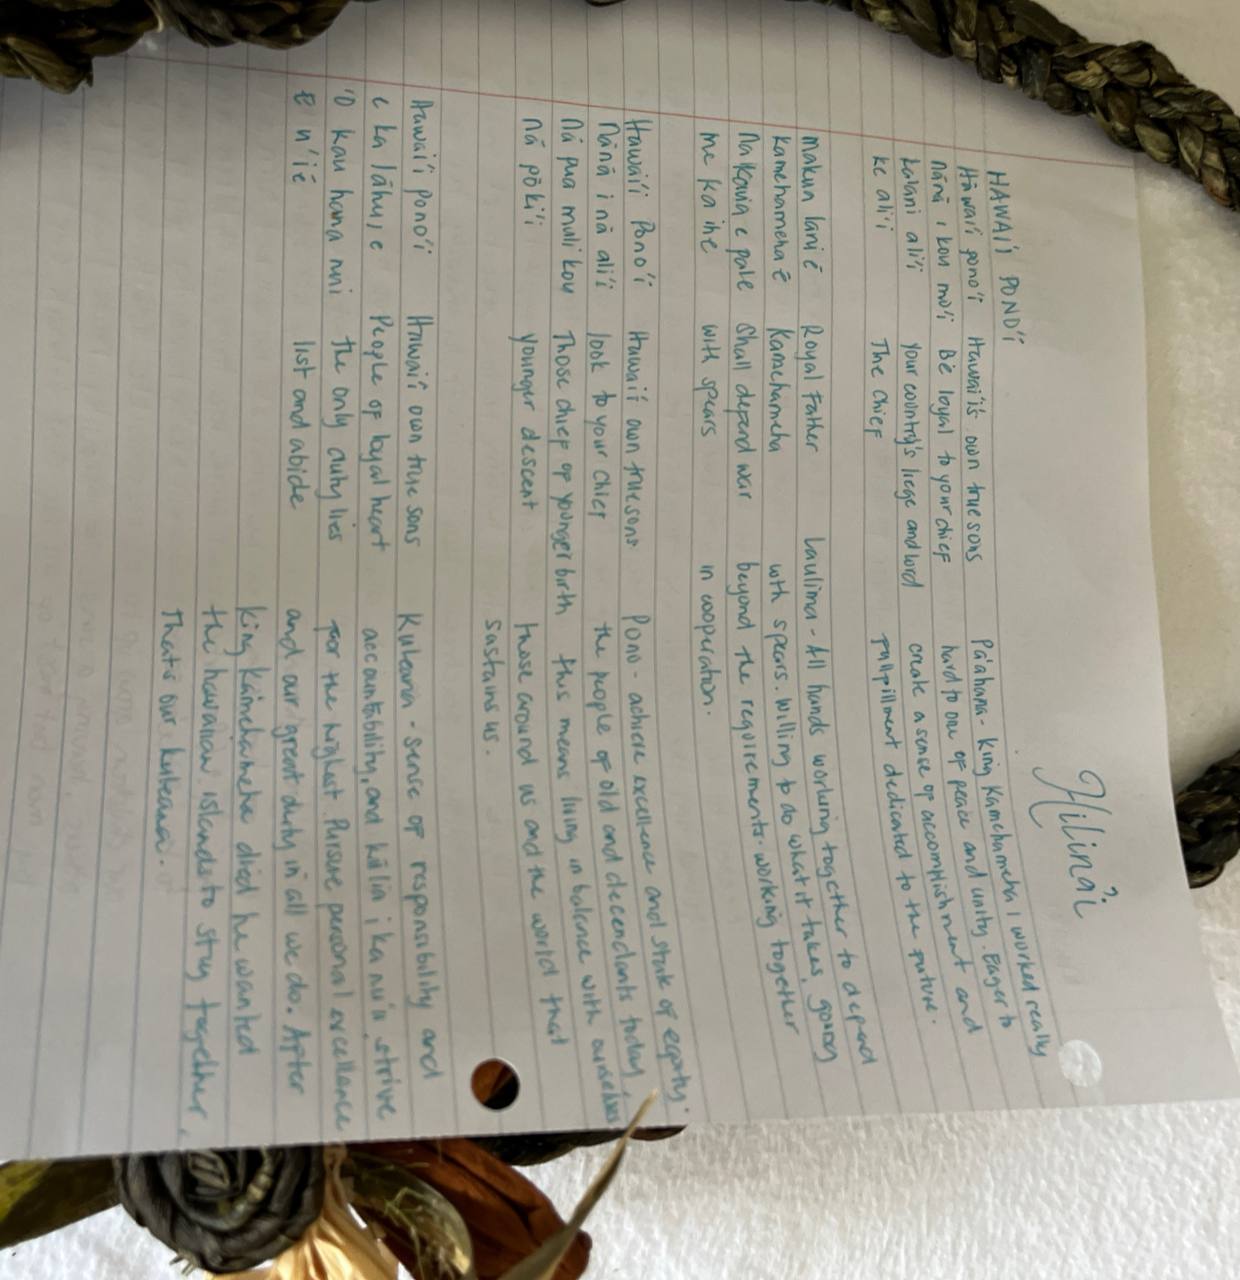 Hilinai
HAWAI'I PONO'I
Hawai'i pono'i Hawai'is own true sons Pa'ahana - King Kamehameha I worked really
nānā i kou mo'i Be loyal to your chief hard to one of peace and unity. Eager to
kalani ali'i your country's liege and lord create a sense of accomplishment and
ke ali'i The chief fullfillment dedicated to the future.
makua lani ē Royal Father Laulima - All hands working together to defend
kamehameha ē Kamehameha with spears. willing to do what it takes, going
na kaua e pale Shall defend war beyond the requirements. working together
me ka ihe with spears in cooperation.
Hawai'i Pono'i Hawai'i own true sons Pono - achieve excellence and state of equity.
Nānā i nā ali'i look to your chief the people of old and decendants today,
Nā pua muli kou Those chief of younger birth this means living in balance with ourselves
nā pōki'i younger descent those around us and the world that
sustains us.
Hawai'i pono'i Hawai'i own true sons Kuleana - sense of responsibility and
e ka lāhui e People of loyal heart accountability, and kūlia i ka nu'u. strive
'O kau hana nui the only duty lies for the highest. Pursue personal excellence
E u'i ē list and abide and our great duty in all we do. After
King Kamehameha died he wanted
the hawaiian islands to stay together,
That's our kuleana.